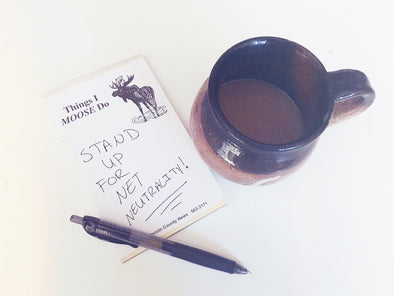 Things I
MOOSE Do
STAND
UP
FOR
NET
NEUTRALITY!
County News 563-3171